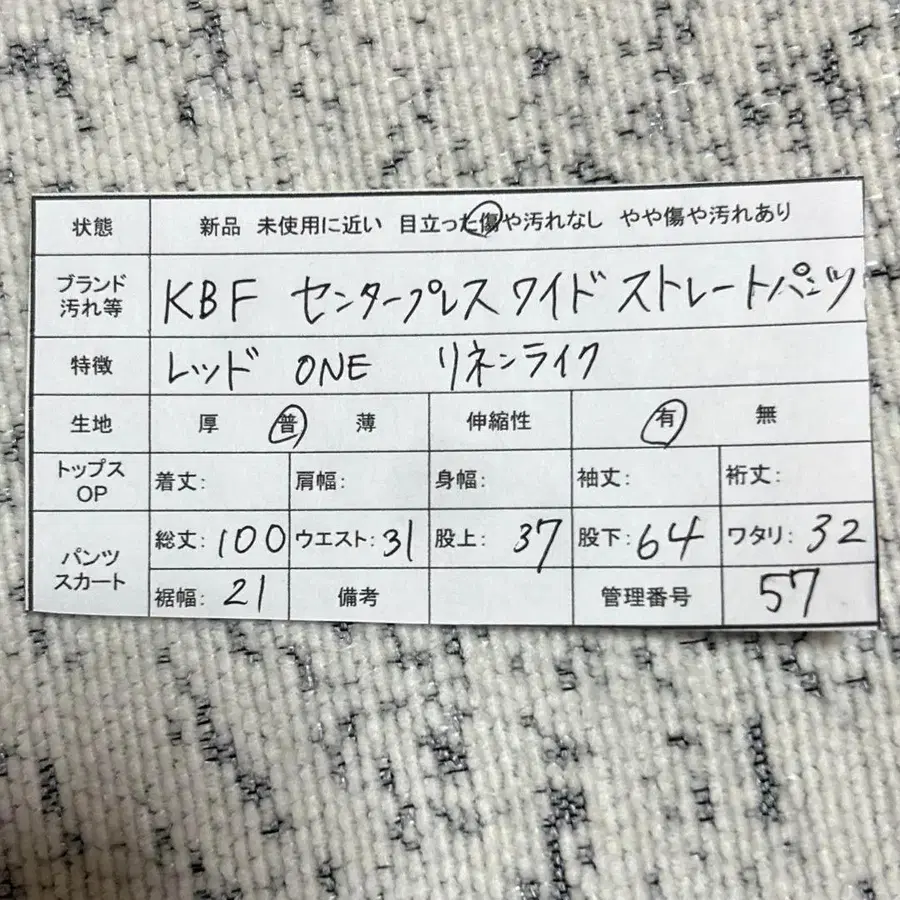 状態 新品 未使用に近い 目立った傷や汚れなし やや傷や汚れあり
ブランド
汚れ等 KBF センタープレス ワイド ストレートパンツ
特徴 レッド ONE リネンライク
生地 厚 普 薄 伸縮性 有 無
トップス
OP 着丈: 肩幅: 身幅: 袖丈: 裄丈:
パンツ
スカート 総丈: 100 ウエスト: 31 股上: 37 股下: 64 ワタリ: 32
裾幅: 21 備考 管理番号 57